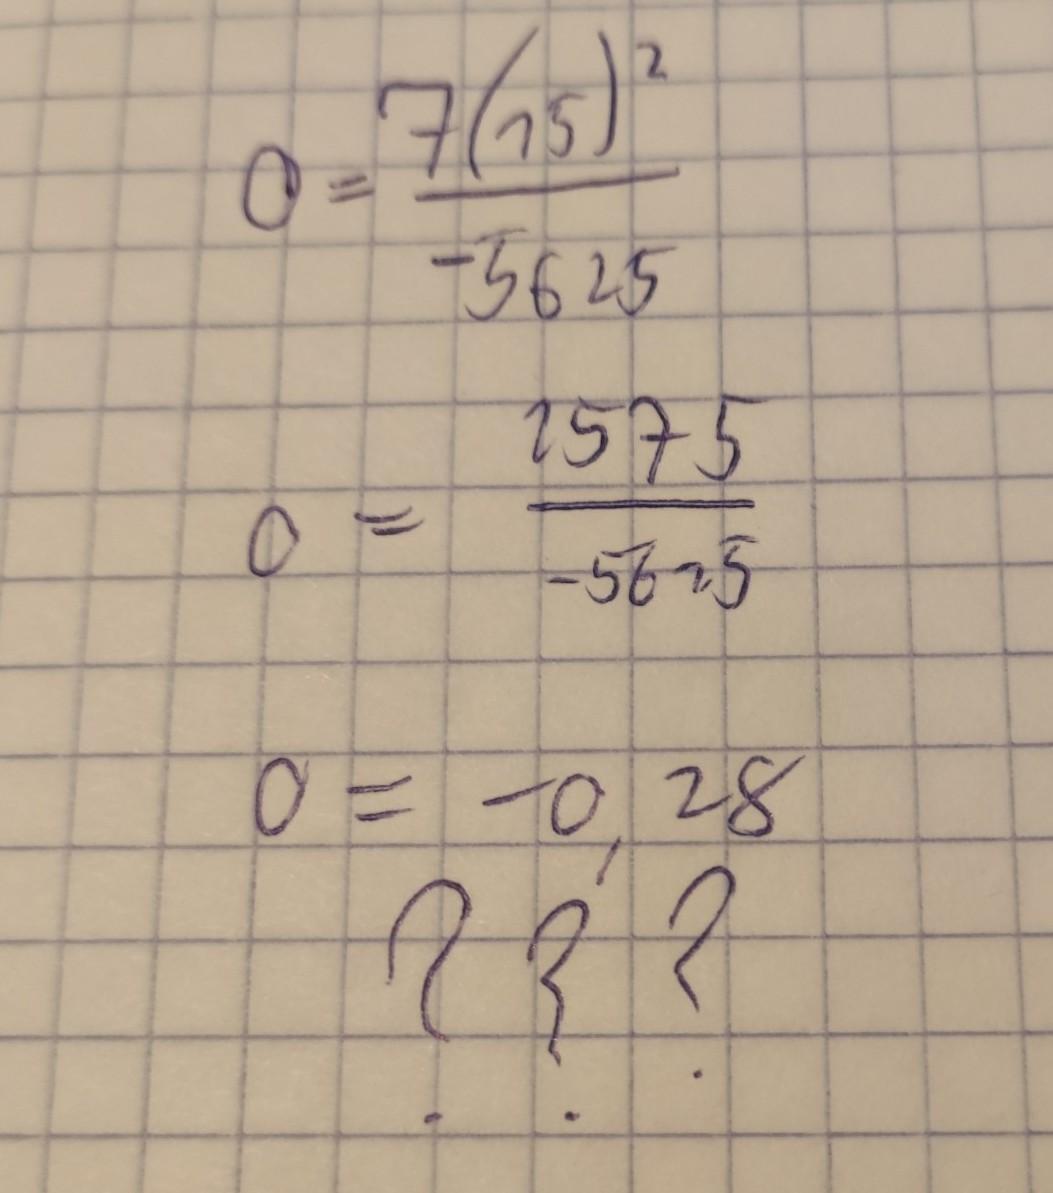 0 = 7(15)²
-5625
0 = 1575
-5625
0 = -0,28
? ? ?